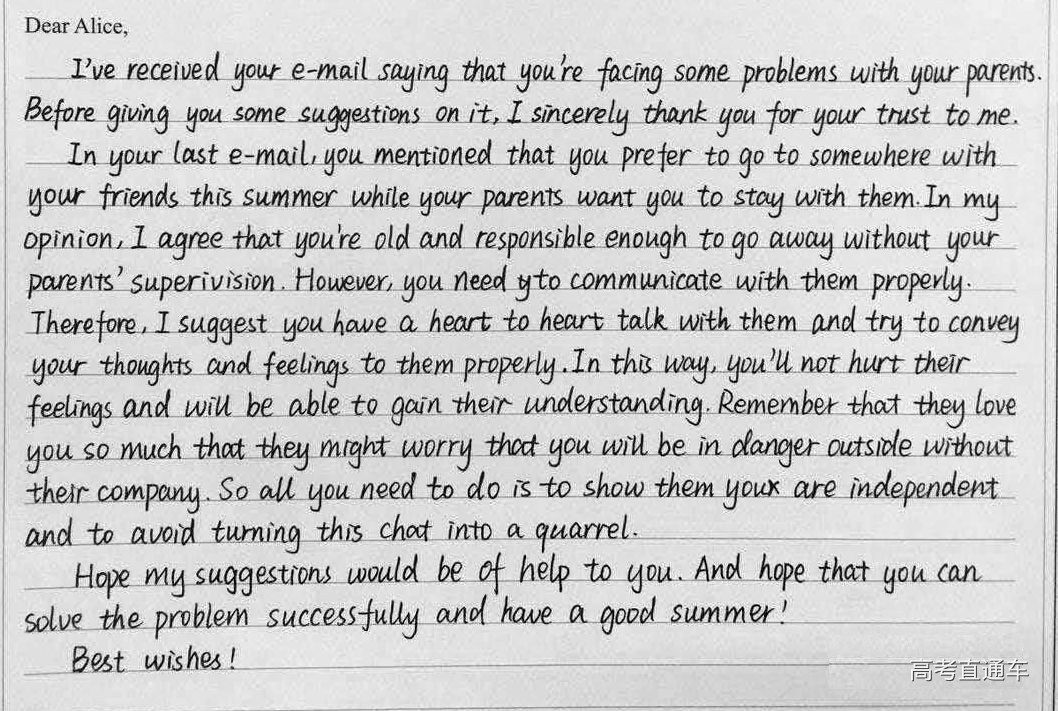 Dear Alice,
I've received your e-mail saying that you're facing some problems with your parents.
Before giving you some suggestions on it, I sincerely thank you for your trust to me.
In your last e-mail, you mentioned that you prefer to go to somewhere with
your friends this summer while your parents want you to stay with them. In my
opinion, I agree that you're old and responsible enough to go away without your
parents' superivision. However, you need to communicate with them properly.
Therefore, I suggest you have a heart to heart talk with them and try to convey
your thoughts and feelings to them properly. In this way, you'll not hurt their
feelings and will be able to gain their understanding. Remember that they love
you so much that they might worry that you will be in danger outside without
their company. So all you need to do is to show them you are independent
and to avoid turning this chat into a quarrel.
Hope my suggestions would be of help to you. And hope that you can
solve the problem successfully and have a good summer!
Best wishes!
高考直通车